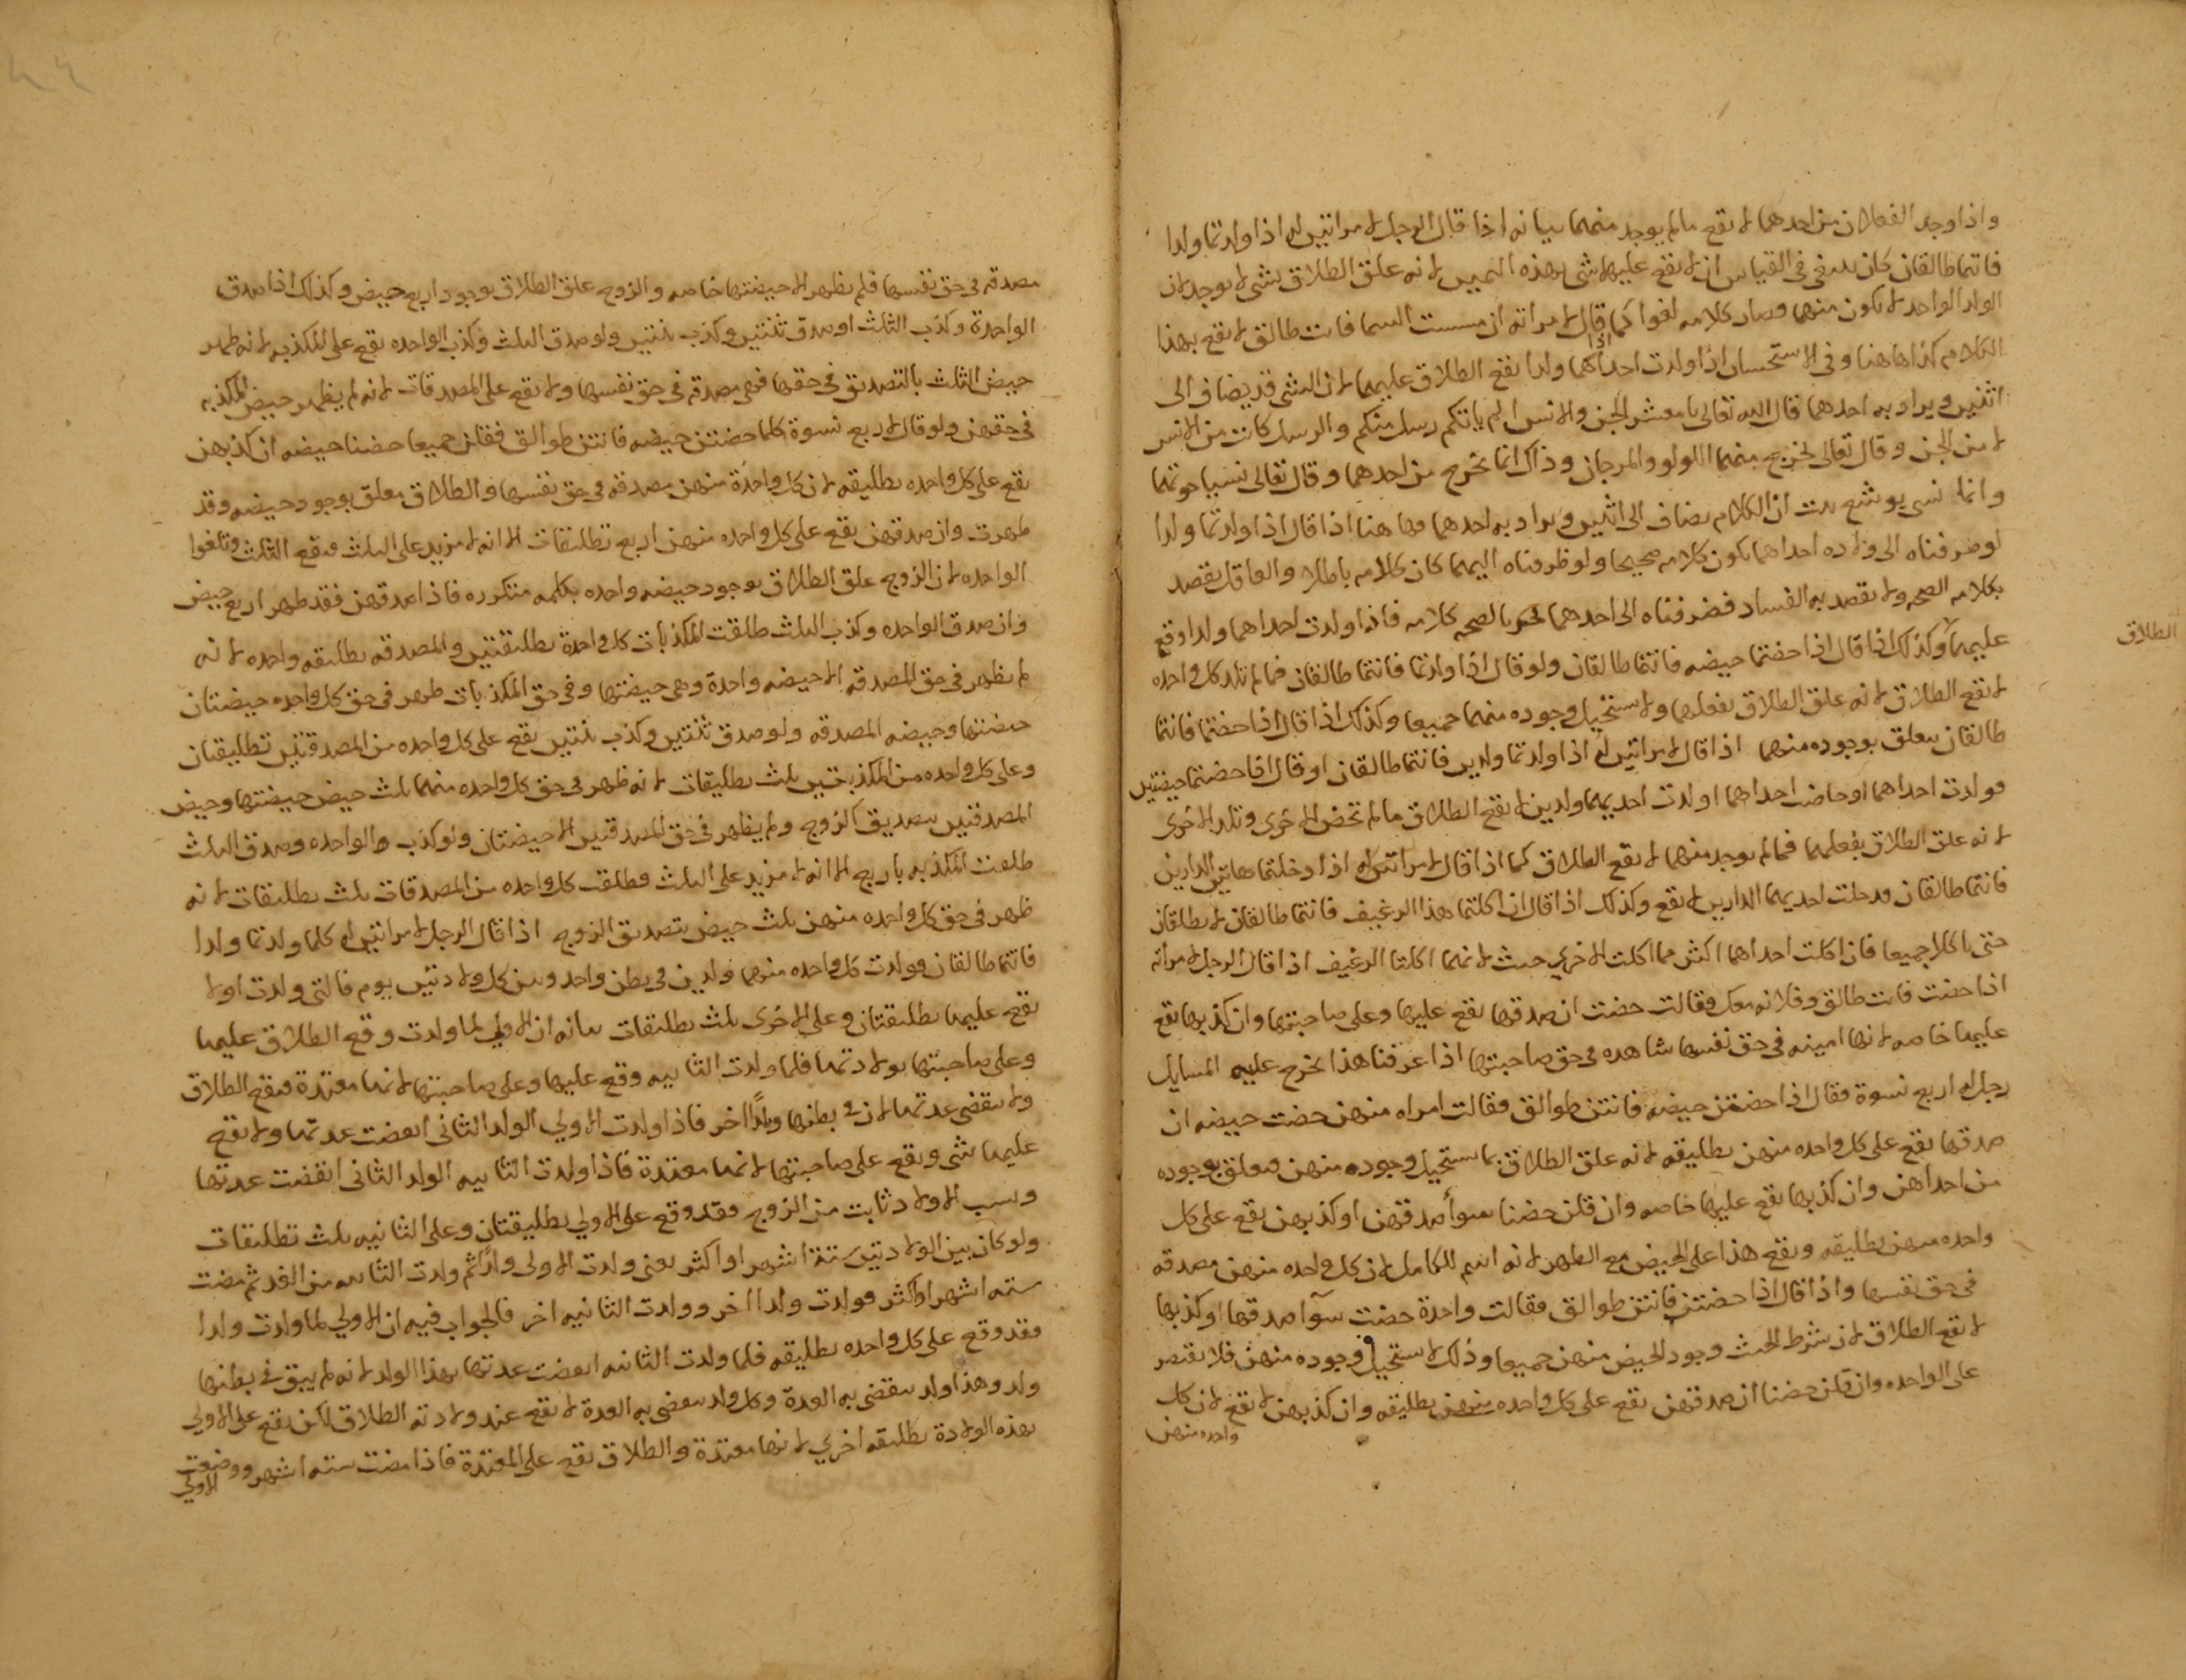 واذا وجد الفعلان من احدهما لا يقع ما لم يوجد منهما بيانه اذا قال الرجل لامراتين له اذا ولدتما ولدا
فانتما طالقان كان ينبغي في القياس ان لا يقع عليهما شي بهذه اليمين لانه علق الطلاق بشي لا يوجد لان
الولد الواحد لا يكون منهما وصار كلامه لغوا كما اذا قال لامراته ان مسست السما فانت طالق لا يقع بهذا
الكلام كذا هاهنا وفي الاستحسان اذا ولدت احداهما ولدا يقع الطلاق عليهما لان الشي قد يضاف الى
اثنين ويراد به احدهما قال الله تعالى يا معشر الجن والانس الم ياتكم رسل منكم والرسل كانت من الانس
لا من الجن وقال تعالى يخرج منهما اللولو والمرجان وذاك انما يخرج من احدهما وقال تعالى نسيا حوتهما
وانما نسي يوشع ثبت ان الكلام يضاف الى اثنين ويراد به احدهما فهاهنا اذا قال اذا ولدتما ولدا
لو صرفناه الى ولاده احداهما يكون كلامه صحيحا ولو صرفناه اليهما كان كلامه باطلا والعاقل يقصد
بكلامه الصحه ولا يقصد به الفساد فصرفناه الى احدهما بالصحه كلامه فاذا ولدت احداهما ولدا وقع
الطلاق
عليهما وكذلك اذا قال اذا حضتما حيضه فانتما طالقان ولو قال اذا ولدتما فانتما طالقان فما لم تلد كل واحده
لا يقع الطلاق لانه علق الطلاق بفعلهما ولا يستحيل وجوده منهما جميعا وكذلك اذا قال اذا حضتما فانتما
طالقان يتعلق بوجوده منهما اذا قال لامراتين له اذا ولدتما ولدين فانتما طالقان او قال اذا حضتما حيضتين
فولدت احداهما او حاضت احداهما او ولدت احديهما ولدين لا يقع الطلاق ما لم تحض الاخرى وتلد الاخرى
لانه علق الطلاق بفعلهما فما لم يوجد منهما لا يقع الطلاق كما اذا قال لامراتين له اذا دخلتما هاتين الدارين
فانتما طالقان فدخلت احديهما الدارين لا يقع وكذلك اذا قال ان اكلتما هذا الرغيف فانتما طالقان لا يطلقان
حتى ياكلا جميعا فان اكلت احداهما اكثر مما اكلت الاخرى حنث لانهما اكلتا الرغيف اذا قال الرجل لامراته
اذا حضت فانت طالق وفلانه معك فقالت حضت ان صدقها يقع عليها وعلى صاحبتها وان كذبها يقع
عليها خاصه لانها امينه في حق نفسها شاهده في حق صاحبتها اذا عرفنا هذا يخرج عليه المسايل
رجل له اربع نسوة فقال اذا حضتن حيضه فانتن طوالق فقالت امراه منهن حضت حيضه ان
صدقها يقع على كل واحده منهن تطليقه لانه علق الطلاق بما يستحيل وجوده منهن فتعلق بوجوده
من احداهن وان كذبها يقع عليها خاصه وان قلن حضنا سوأ صدقهن او كذبهن يقع على كل
واحده منهن تطليقه ويقع هذا على الحيض مع الطهر لانه اسم للكامل لان كل واحده منهن مصدقه
في حق نفسها واذا قال اذا حضتن فانتن طوالق فقالت واحدة حضت سوآ صدقها او كذبها
لا يقع الطلاق لان شرط الحنث وجود الحيض منهن جميعا وذلك لا يستحيل وجوده منهن فلا يقتصر
على الواحده وان قلن حضنا ان صدقهن يقع على كل واحده منهن تطليقه وان كذبهن لا يقع لان كل
واحده منهن
مصدقه في حق نفسها فلم يظهر الا حيضتها خاصه والزوج علق الطلاق بوجود اربع حيض وكذلك اذا صدق
الواحدة وكذب الثلث او صدق ثنتين وكذب ثنتين ولو صدق الثلث وكذب الواحده يقع على المكذبه لانه ظهر
حيض الثلث بالتصديق في حقها فهي مصدقه في حق نفسها ولا يقع على المصدقات لانه لم يظهر حيض المكذبه
في حقهن ولو قال لاربع نسوة كلما حضتن حيضه فانتن طوالق فقلن جميعا حضنا حيضه ان كذبهن
يقع على كل واحده تطليقه لان كل واحدة منهن مصدقه في حق نفسها والطلاق معلق بوجود حيضه وقد
ظهرت وان صدقهن يقع على كل واحده منهن اربع تطليقات الا انه لا مزيد على الثلث فيقع الثلث وتلغوا
الواحده لان الزوج علق الطلاق بوجود حيضه واحده بكلمه متكرره فاذا صدقهن فقد ظهر اربع حيض
وان صدق الواحده وكذب الثلث طلقت المكذبات كل واحدة تطليقتين والمصدقه تطليقه واحده لانه
لم يظهر في حق المصدقه الا حيضه واحدة وهي حيضتها وفي حق المكذبات ظهر في حق كل واحده حيضتان
حيضتها وحيضه المصدقه ولو صدق ثنتين وكذب ثنتين يقع على كل واحده من المصدقتين تطليقتان
وعلى كل واحده من المكذبتين ثلث تطليقات لانه ظهر في حق كل واحده منهما ثلث حيض حيضتها وحيض
المصدقتين بتصديق الزوج ولم يظهر في حق المصدقتين الا حيضتان ولو كذب الواحده وصدق الثلث
طلقت المكذبه باربع الا انه لا مزيد على الثلث وطلقت كل واحده من المصدقات ثلث تطليقات لانه
ظهر في حق كل واحده منهن ثلث حيض بتصديق الزوج اذا قال الرجل لامراتين له كلما ولدتما ولدا
فانتما طالقان فولدت كل واحده منهما ولدين في بطن واحد وبين كل ولادتين يوم فالتي ولدت اولا
يقع عليها تطليقتان وعلى الاخرى ثلث تطليقات بيانه ان الاولى لما ولدت وقع الطلاق عليها
وعلى صاحبتها بولادتها فلما ولدت الثانيه وقع عليها وعلى صاحبتها لانها معتدة فيقع الطلاق
ولا تنقضي عدتها لان في بطنها ولدا اخر فاذا ولدت الاولى الولد الثاني انقضت عدتها ولا يقع
عليها شي ويقع على صاحبتها لانها معتدة فاذا ولدت الثانيه الولد الثاني انقضت عدتها
ونسب الاولاد ثابت من الزوج فقد وقع على الاولى تطليقتان وعلى الثانيه ثلث تطليقات
ولو كان بين الولادتين ستة اشهر او اكثر يعني ولدت الاولى ولدا ثم ولدت الثانيه من الغد ثم مضت
سته اشهر او اكثر فولدت ولدا اخر وولدت الثانيه اخر فالجواب فيه ان الاولى لما ولدت ولدا
فقد وقع على كل واحده تطليقه فلما ولدت الثانيه انقضت عدتها بهذا الولد لانه لم يبق في بطنها
ولد وهذا ولد تنقضي به العدة وكل ولد تنقضي به العدة لا يقع عند ولادته الطلاق لكن يقع على الاولى
بهذه الولادة تطليقه اخرى لانها معتدة والطلاق يقع على المعتدة فاذا مضت سته اشهر ووضعت
الاولى